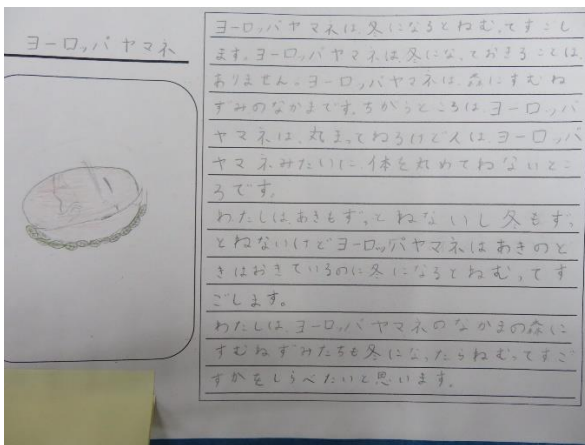 ヨーロッパヤマネ
ヨーロッパヤマネは、冬になるとねむってすごし
ます。ヨーロッパヤマネは、冬になっておきることは
ありません。ヨーロッパヤマネは、森にすむね
ずみのなかまです。ちがうところは、ヨーロッパ
ヤマネは、丸まってねるけど人は、ヨーロッパ
ヤマネみたいに、体を丸めてねないとこ
ろです。
わたしは、あきもずっとねないし冬もずっ
とねないけどヨーロッパヤマネはあきのと
きはおきているのに冬になるとねむってす
ごします。
わたしは、ヨーロッパヤマネのなかまの森に
すむねずみたちも冬になったらねむってすご
すかをしらべたいと思います。